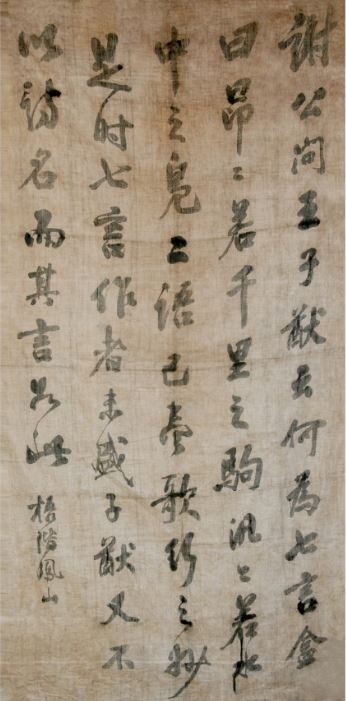 謝公問王子猷云何為七言荅
曰昂〻若千里之駒汎〻若水
中之鳧二語已盡歌行之妙
是时七言作者未盛子猷又不
以詩名而其言如此
梧階鳳山